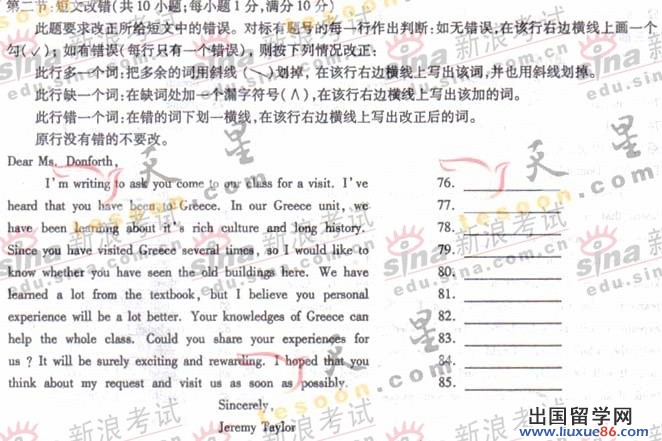 第二节:短文改错(共10小题;每小题1分,满分10分)
此题要求改正所给短文中的错误。对标有题号的每一行作出判断:如无错误,在该行右边横线上画一个
勾(✓);如有错误(每行只有一个错误),则按下列情况改正:
此行多一个词:把多余的词用斜线(\)划掉,在该行右边横线上写出该词,并也用斜线划掉。
此行缺一个词:在缺词处加一个漏字符号(∧),在该行右边横线上写出该加的词。
此行错一个词:在错的词下划一横线,在该行右边横线上写出改正后的词。
原行没有错的不要改。
Dear Ms. Donforth,
I'm writing to ask you come to our class for a visit. I've 76.
heard that you have been to Greece. In our Greece unit, we 77.
have been learning about it's rich culture and long history. 78.
Since you have visited Greece several times, so I would like to 79.
know whether you have seen the old buildings here. We have 80.
learned a lot from the textbook, but I believe you personal 81.
experience will be a lot better. Your knowledges of Greece can 82.
help the whole class. Could you share your experiences for 83.
us ? It will be surely exciting and rewarding. I hoped that you 84.
think about my request and visit us as soon as possibly. 85.
Sincerely,
Jeremy Taylor
sina 新浪考试
edu.sina.com.cn
天星
Tesoon.com
出国留学网
www.liuxue86.com